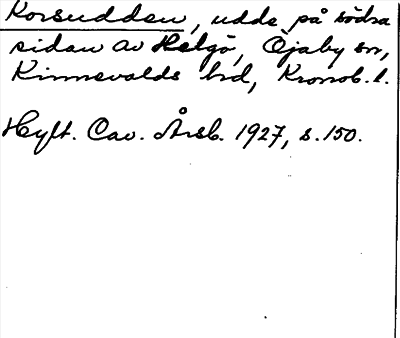 Korsudden, udde på södra
sidan av Helgö, Öjaby sn,
Kinnevalds hd, Kronob. l.
Hylt. Cav. Årsb. 1927, s. 150.